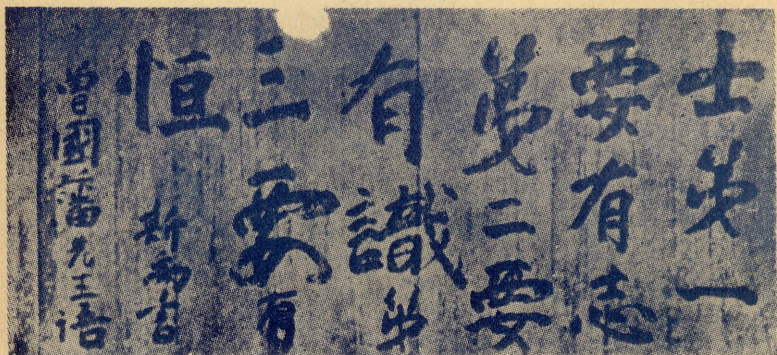 士第一
要有志
第二要
有識第
三要有
恒 斯
曾國藩先生語